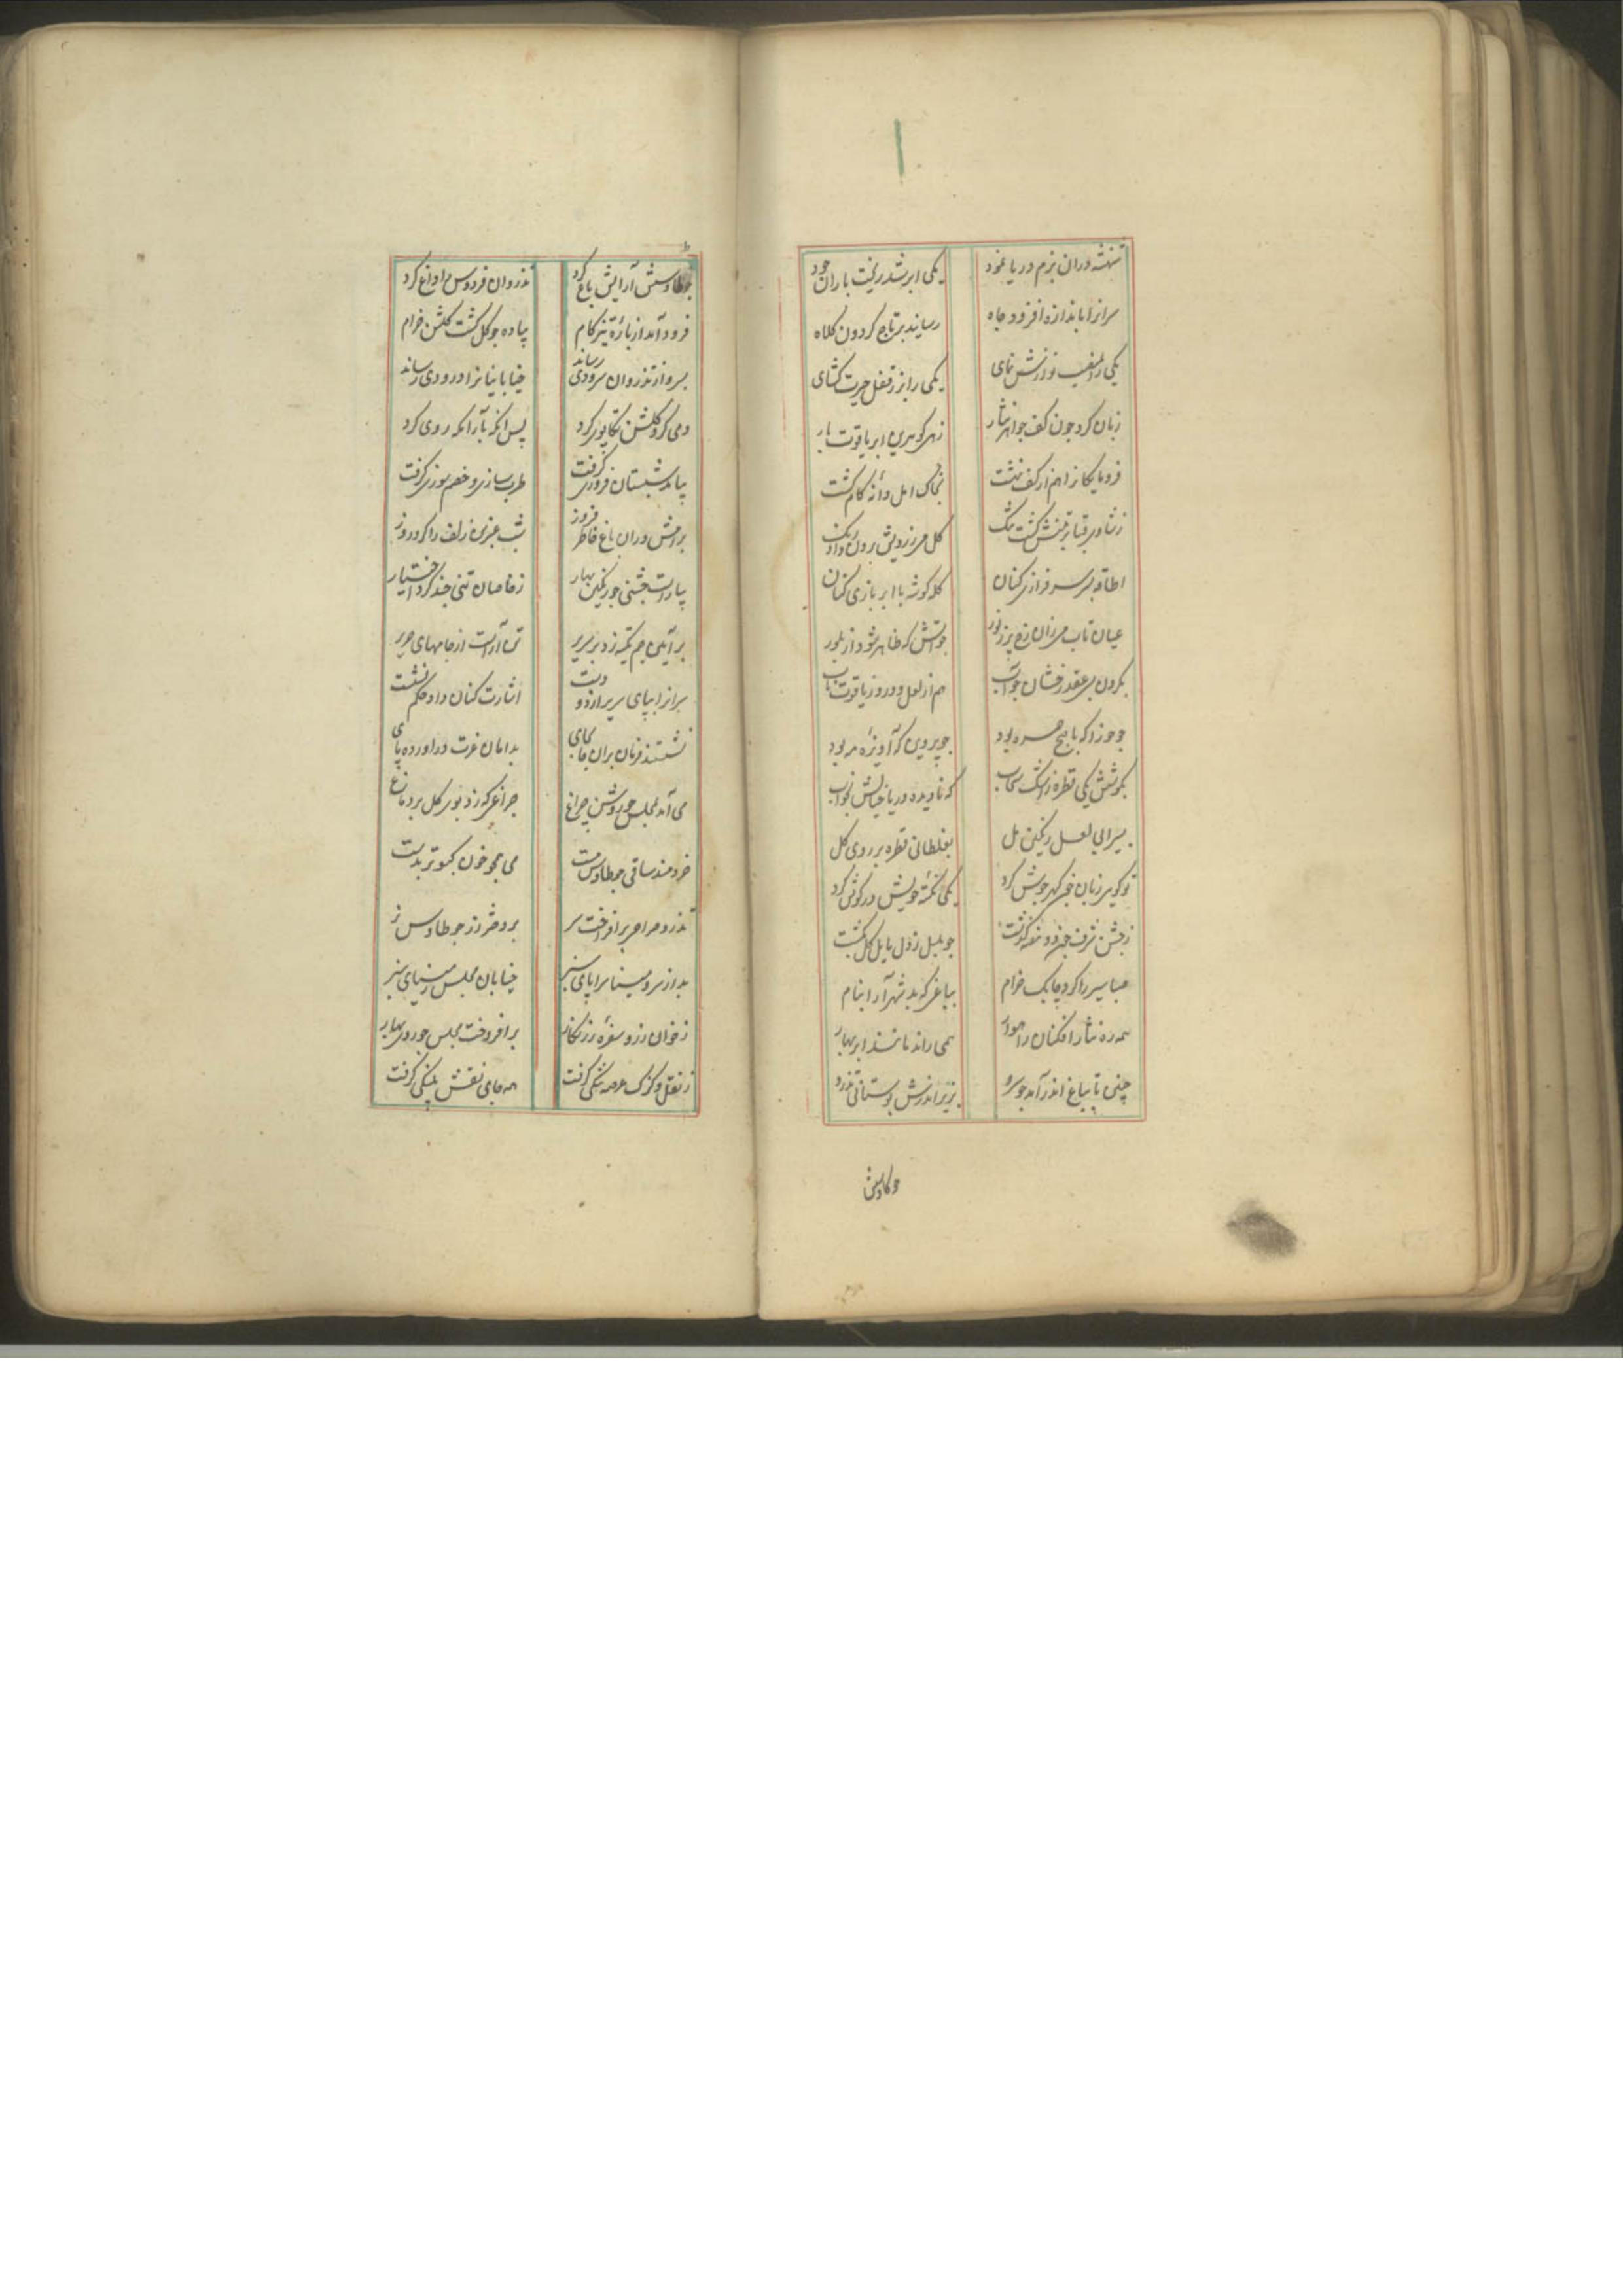 شهنشه دران بزم دریا نمود یکی ابر شد ریخت باران جود
سرانرا باندازه افزود جاه رسانید بر تاج کردون کلاه
یکی را نوازش نمای یکی را بزر قفل حیرت کشای
زبان کرد چون کف جواهر نثار ابر یاقوت بار
کف بخاک امل دانه
کشت تنک کل
سرفرازی کنان کله کوشه با ابر بازی کنان
عیان تاب چو آتش که ظاهر شود از بلور
بکردن عقد رخشان چو آب هم از لعل و در و ز یاقوت ناب
چو جوزا که با بود چو پروین که آویزه مه بود
بکوشش یکی قطره ز اشک سحاب که نادیده دریا خیالش بخواب
بسیرابی لعل رنکین مل بغلطانی قطره بر روی کل
جوش کرد یکی نکته خویش در کوش کرد
ز جشن شرف چون دو هفته کذشت چو بلبل ز دل مایل کل کشت
صبا سیر را کرد چابک خرام بباغی که بد شهرآرا بنام
همه ره نثار افکنان راهوار همی راند مانند ابر بهار
چنین تا بباغ اندر آمد چو سرو بزیر اندرش بوستانی تذرو
چو طاوسش آرایش باغ کرد تذروان فردوس را داغ کرد
فرود آمد از باره تیز کام پیاده چو کل کشت کلشن خرام
بسرو از تذروان سرودی رساند خیابانیانرا درودی رساند
دمی کرد کلشن تکاپوی کرد پس آنکه بآرامکه روی کرد
شبستان فروزی کرفت طرب سازی و خصم سوزی کرفت
دران باغ خاطر فروز شب عنبرین زلف را کرد روز
بیاراست جشنی چو رنکین بهار ز خاصان تنی چند کرد اختیار
بر آیین جم تکیه زد بر سریر تن آراست از جامهای حریر
سرانرا بپای سریر از دو دست اشارت کنان داد حکم نشست
نشستند فرمان بران جابجای بدامان عزت در آورده پای
می آمد بمجلس چو روشن چراغ چراغی که زد بوی کل بر دماغ
خردمند ساقی چو طاوس مست می همچو خون کبوتر بدست
تذرو صراحی بر افراخت سر چو طاوس نر
بد از سرو مینا سراپای سبز خیابان مجلس ز مینای سبز
ز خوان زر و سفره زرنکار بر افروخت مجلس چو روی بهار
ز نقل و کزک عرصه تنکی کرفت همه جای نقش پلنکی کرفت
چو طاوسش